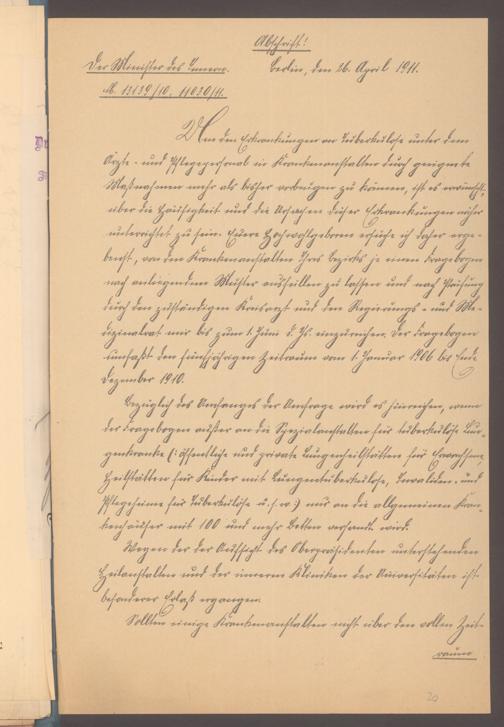 Abschrift!
Der Minister des Innern.
Berlin, den 26. April 1911.
M. 13139/10. 11030/11.
Um den Erkrankungen an Tuberkulose unter dem
Ärzte- und Pflegepersonal in Krankenanstalten durch geeignete
Maßnahmen mehr als bisher vorbeugen zu können, ist es erwünscht,
über die Häufigkeit und die Ursachen dieser Erkrankungen näher
unterrichtet zu sein. Euere Hochwohlgeboren ersuche ich daher erge-
benst, von den Krankenanstalten Ihres Bezirks je einen Fragebogen
nach anliegendem Muster ausfüllen zu lassen und nach Prüfung
durch den zuständigen Kreisarzt und den Regierungs- und Me-
dizinalrat mir bis zum 1. Juni d. Js. einzureichen. Der Fragebogen
umfaßt den fünfjährigen Zeitraum vom 1. Januar 1906 bis Ende
Dezember 1910.
Bezüglich des Umfanges der Umfrage wird es hinreichen, wenn
der Fragebogen außer an die Spezialanstalten für tuberkulöse Lun-
genkranke (: öffentliche und private Lungenheilstätten für Erwachsene,
Heilstätten für Kinder mit Lungentuberkulose, Invaliden- und
Pflegeheime für Tuberkulöse u.s.w :) nur an die allgemeinen Kran-
kenhäuser mit 100 und mehr Betten versandt wird.
Wegen der der Aufsicht des Oberpräsidenten unterstehenden
Heilanstalten und der inneren Kliniken der Universitäten ist
besonderer Erlaß ergangen.
Sollten einige Krankenanstalten nicht über den vollen Zeit-
raum
20